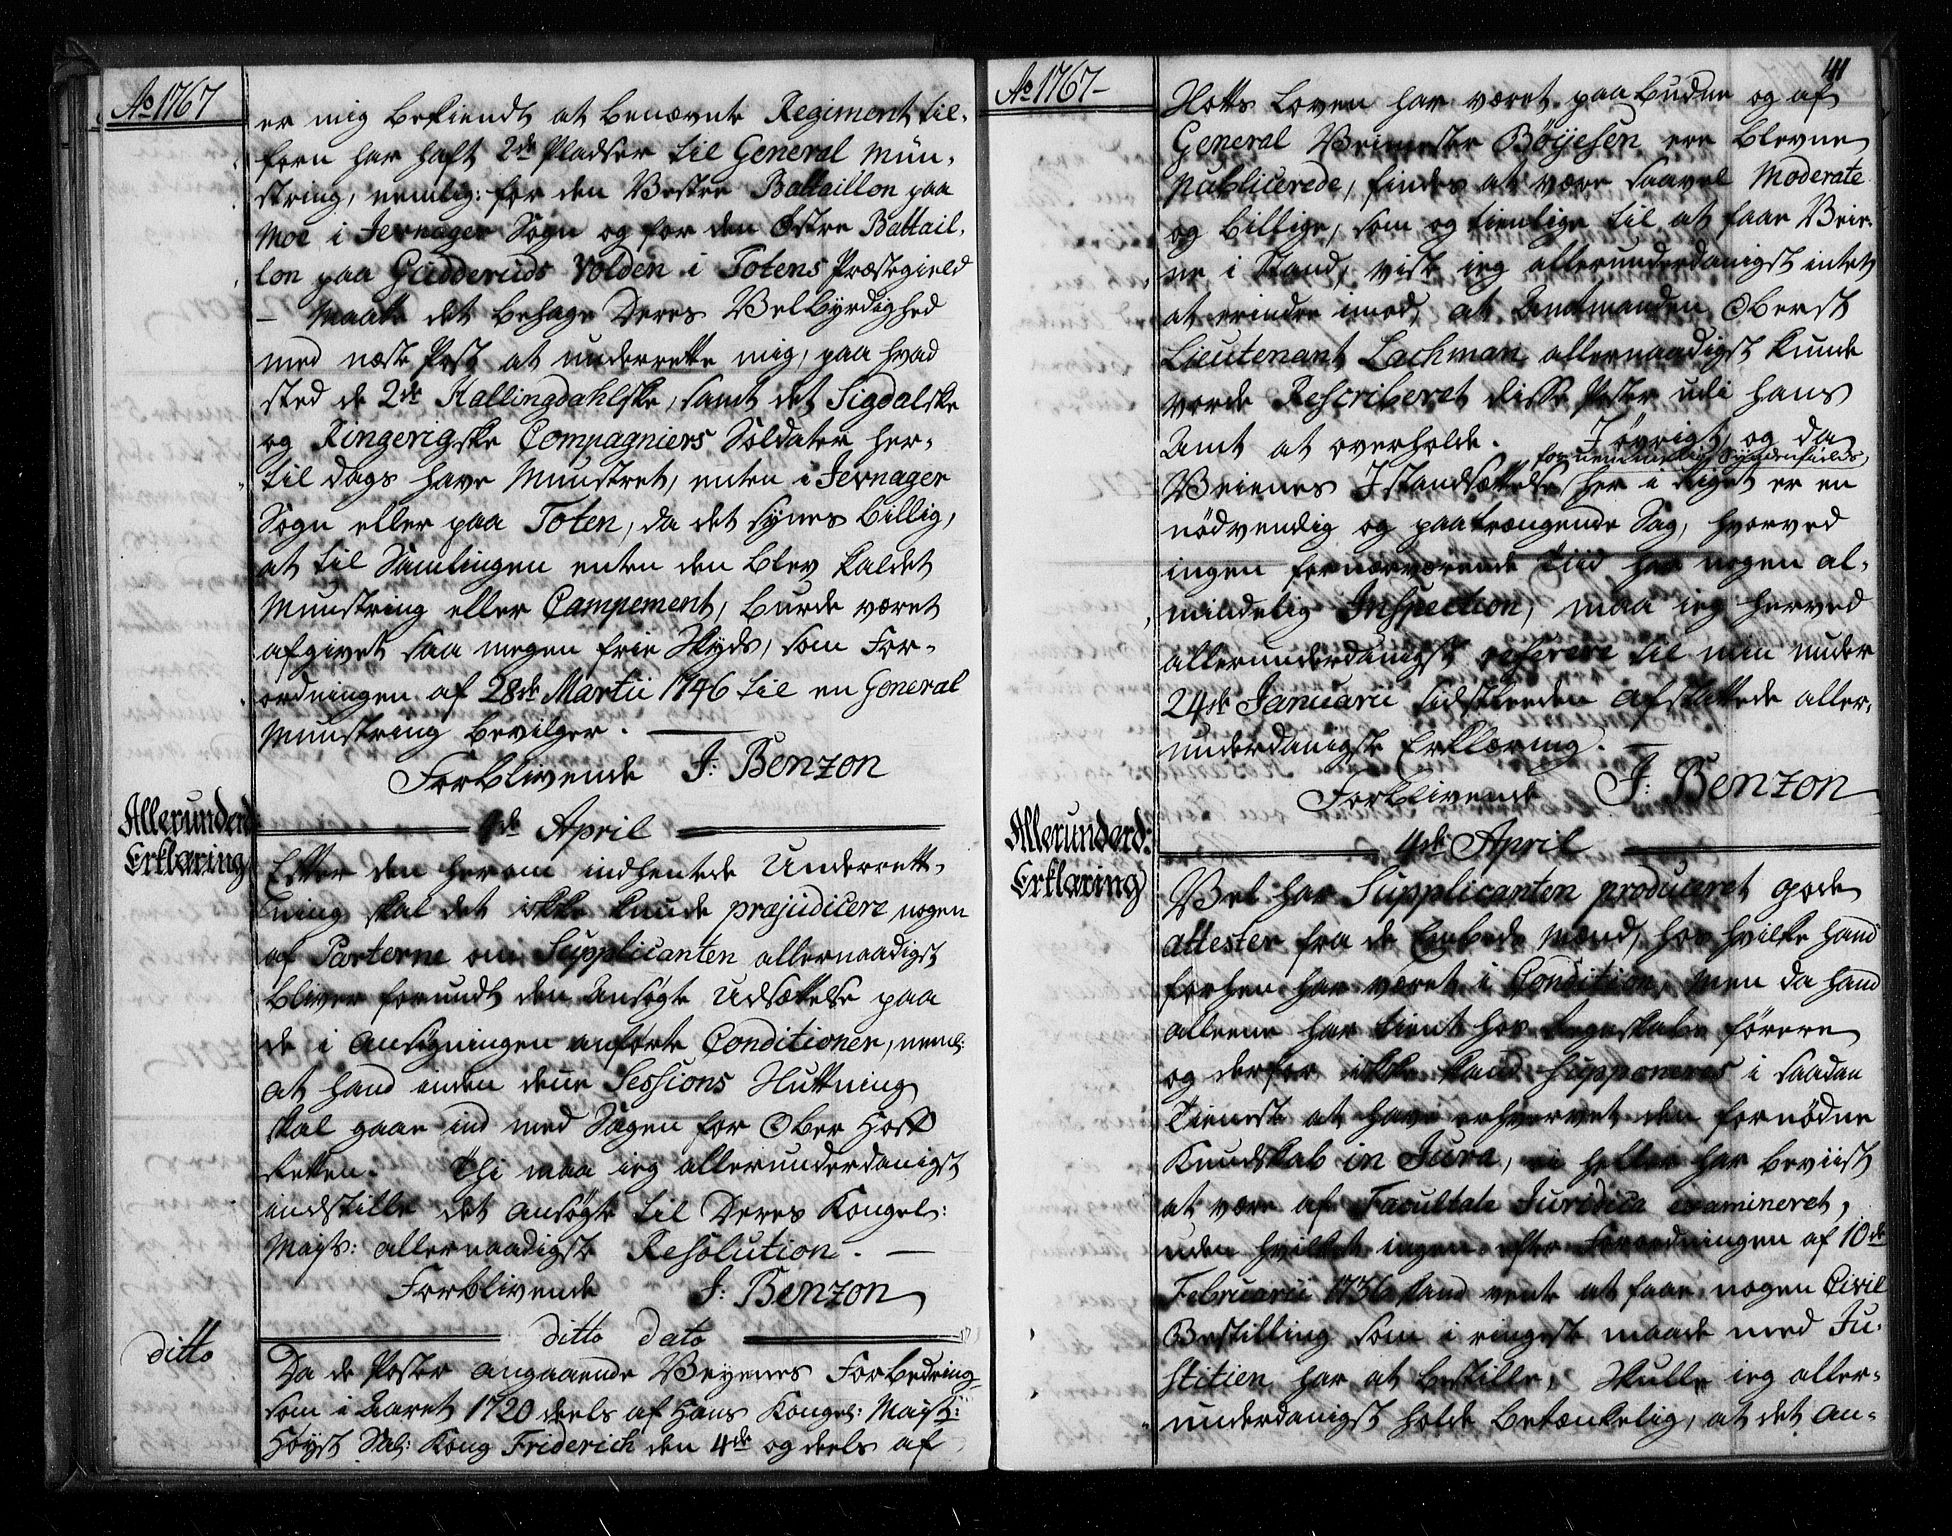 Ao 1767
er mig bekiendt at benævnte Regiment til-
forn har haft 2de Pladser til General Mün-
string, nemlig: for den Vestre Battaillon paa
Moe i Jevnager Sogn og for den Østre Battail-
lon paa Gudderuds Volden i Totens Præstegield
– Maatte det behage Deres Velbyrdighed
med næste Post at underrette mig, paa hvad
sted de 2de Hallingdahlske, samt det Sigdalske
og Ringerigske Compagniers Soldater her-
til dags have Munstret, enten i Jevnager
Sogn eller paa Toten, da det synes billig,
at til Samlingen enten den blev kaldet
Munstring eller Campement, burde været
afgivet saa megen frie Skyds, som For-
ordningen af 28de Martii 1746 til en General
Munstring bevilger.
Forblivende J: Benzon
Allerunderd
Erklæring
April
Efter den herom indhentede Underrett-
ning skal det ikke kunde præjudicere nogen
af Parterne om Supplicanten allernaadigst
bliver forundt den ansøgte Udsættelse paa
de i ansøgningen anførte Conditioner, neml:
at hand inden denne Sessions Sluttning
skal gaae ind med Sagen for Ober Hoff
Retten. Thi maa ieg allerunderdanigst
indstille det ansøgte til Deres Kongel:
Mayts: allernaadigste Resolution. –
Forblivende J: Benzon
ditto dato
ditto
Da de Poster angaaende Veyenes Forbedring
som i Aaret 1720 deels af Hans Kongel: Mayst:
Høyst Sal: Kong Friderich den 4de og deels af
41
Ao 1767–
Slotts Loven har været paabudne og af
General Veimester Böÿesen ere blevne
publicerede, findes at være saavel Moderate
og billige, som og tienlige til at faae Veie-
ne i Stand, viste ieg allerunderdanigst intet
at erindre imod, at Amtmanden Oberst
Lieutenant Lachman allernaadigst kunde
vorde Rescriberet disse Poster udi hans
Amt at overholde. I øvrigt, og da
fornemmelig Syndenfields
Veienes Istandsættelse her i Riget er en
nödvendig og paatrængende Sag, hvorved
ingen fornærværende Tiid har nogen al-
mindelig Inspection, maa ieg herved
allerunderdanigst referere til min under
24de Januarii sidstleeden afstattede aller-
underdanigste Erklæring. –
Forblivende J: Benzon
Allerunderd:
Erklæring
4de April
Vel har Supplicanten produceret gode
attester fra de Embeds Mænd, hos hvilke hand
forhen har været i Condition, men da hand
alleene har tient hos Regnskabs förere
og derfor ikke kand supponeres i saadan
Tieneste at have erhvervet den fornödne
Kundskab in Jura, ei heller har beviist
at være af Facultate Juridica examineret,
uden hvilket ingen efter Forordningen af 10de
Februarii 1736 kand vente at faae nogen Civil
Bestilling som i ringeste maade med Ju-
stitien har at bestille, skulle ieg aller-
underdanigst holde betænkelig, at det an-